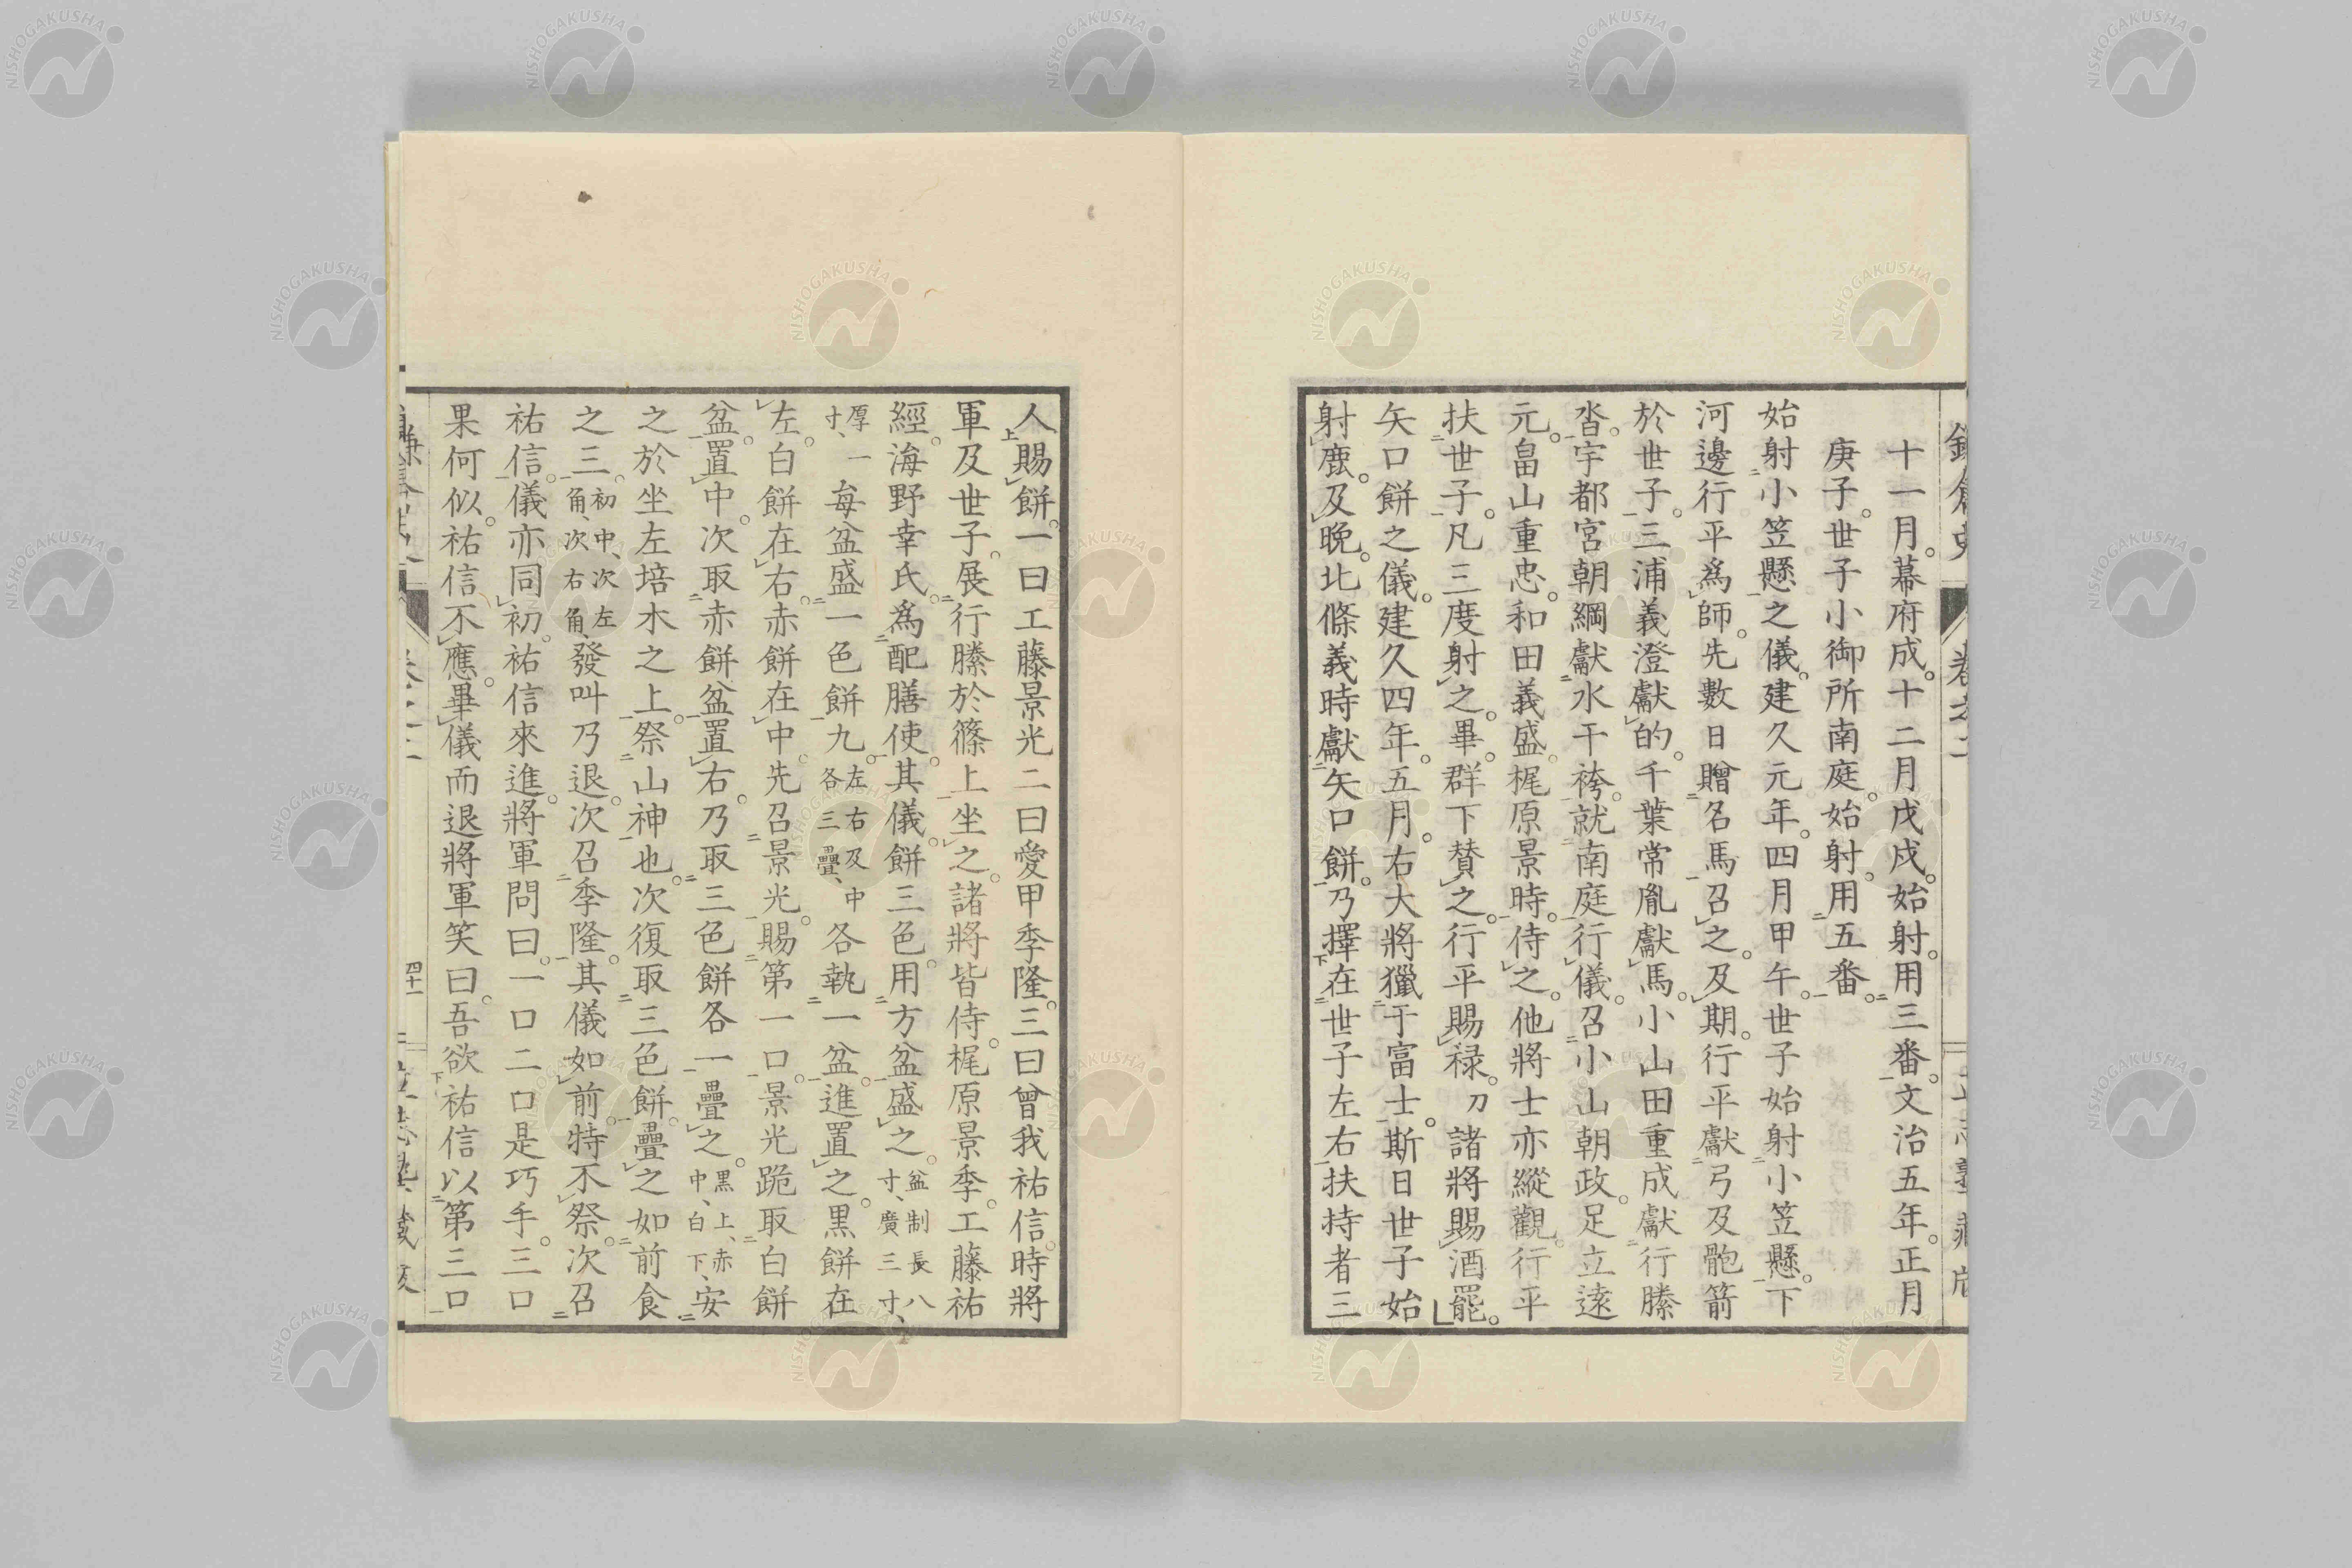 十一月。幕府成。十二月戊戌。始射。用三番。文治五年。正月
庚子。世子小御所南庭。始射。用五番。
始射小笠懸之儀。建久元年。四月甲午。世子始射小笠懸。下
河邊行平爲師。先數日贈名馬召之。及期。行平獻弓及骲箭
於世子。三浦義澄獻的。千葉常胤獻馬。小山田重成獻行縢
沓。宇都宮朝綱獻水干袴。就南庭行儀。召小山朝政。足立遠
元。畠山重忠。和田義盛。梶原景時。侍之。他將士亦縱觀。行平
扶世子。凡三度射之。畢。群下賛之。行平賜祿。刀諸將賜酒罷。
矢口餅之儀。建久四年。五月。右大將獵于富士。斯日世子始
射鹿。及晚。北條義時獻矢口餅。乃擇在世子左右扶持者三
人賜餅。一曰工藤景光二曰愛甲季隆。三曰曾我祐信。時將
軍及世子。展行縢於篠上坐之。諸將皆侍。梶原景季。工藤祐
經。海野幸氏。爲配膳使。其儀。餅三色。用方盆盛之。盆制長八寸、廣三寸、
厚一寸、每盆盛一色餅九。左右及中各三疊、各執一盆。進置之。黑餅在
左。白餅在右。赤餅在中。先召景光。賜第一口。景光跪取白餅
盆。置中。次取赤餅盆。置右。乃取三色餅各一疊之。黑上、赤中、白下、安
之於坐左培木之上。祭山神也。次復取三色餅。疊之如前食
之三。初中、次左角、次右角、發叫乃退。次召季隆。其儀如前。特不祭。次召
祐信。儀亦同初。祐信來進。將軍問曰。一口二口是巧手。三口
果何似。祐信不應。畢儀而退將軍笑曰。吾欲祐信以第三口
卷之二
四十一
NISHOGAKUSHA